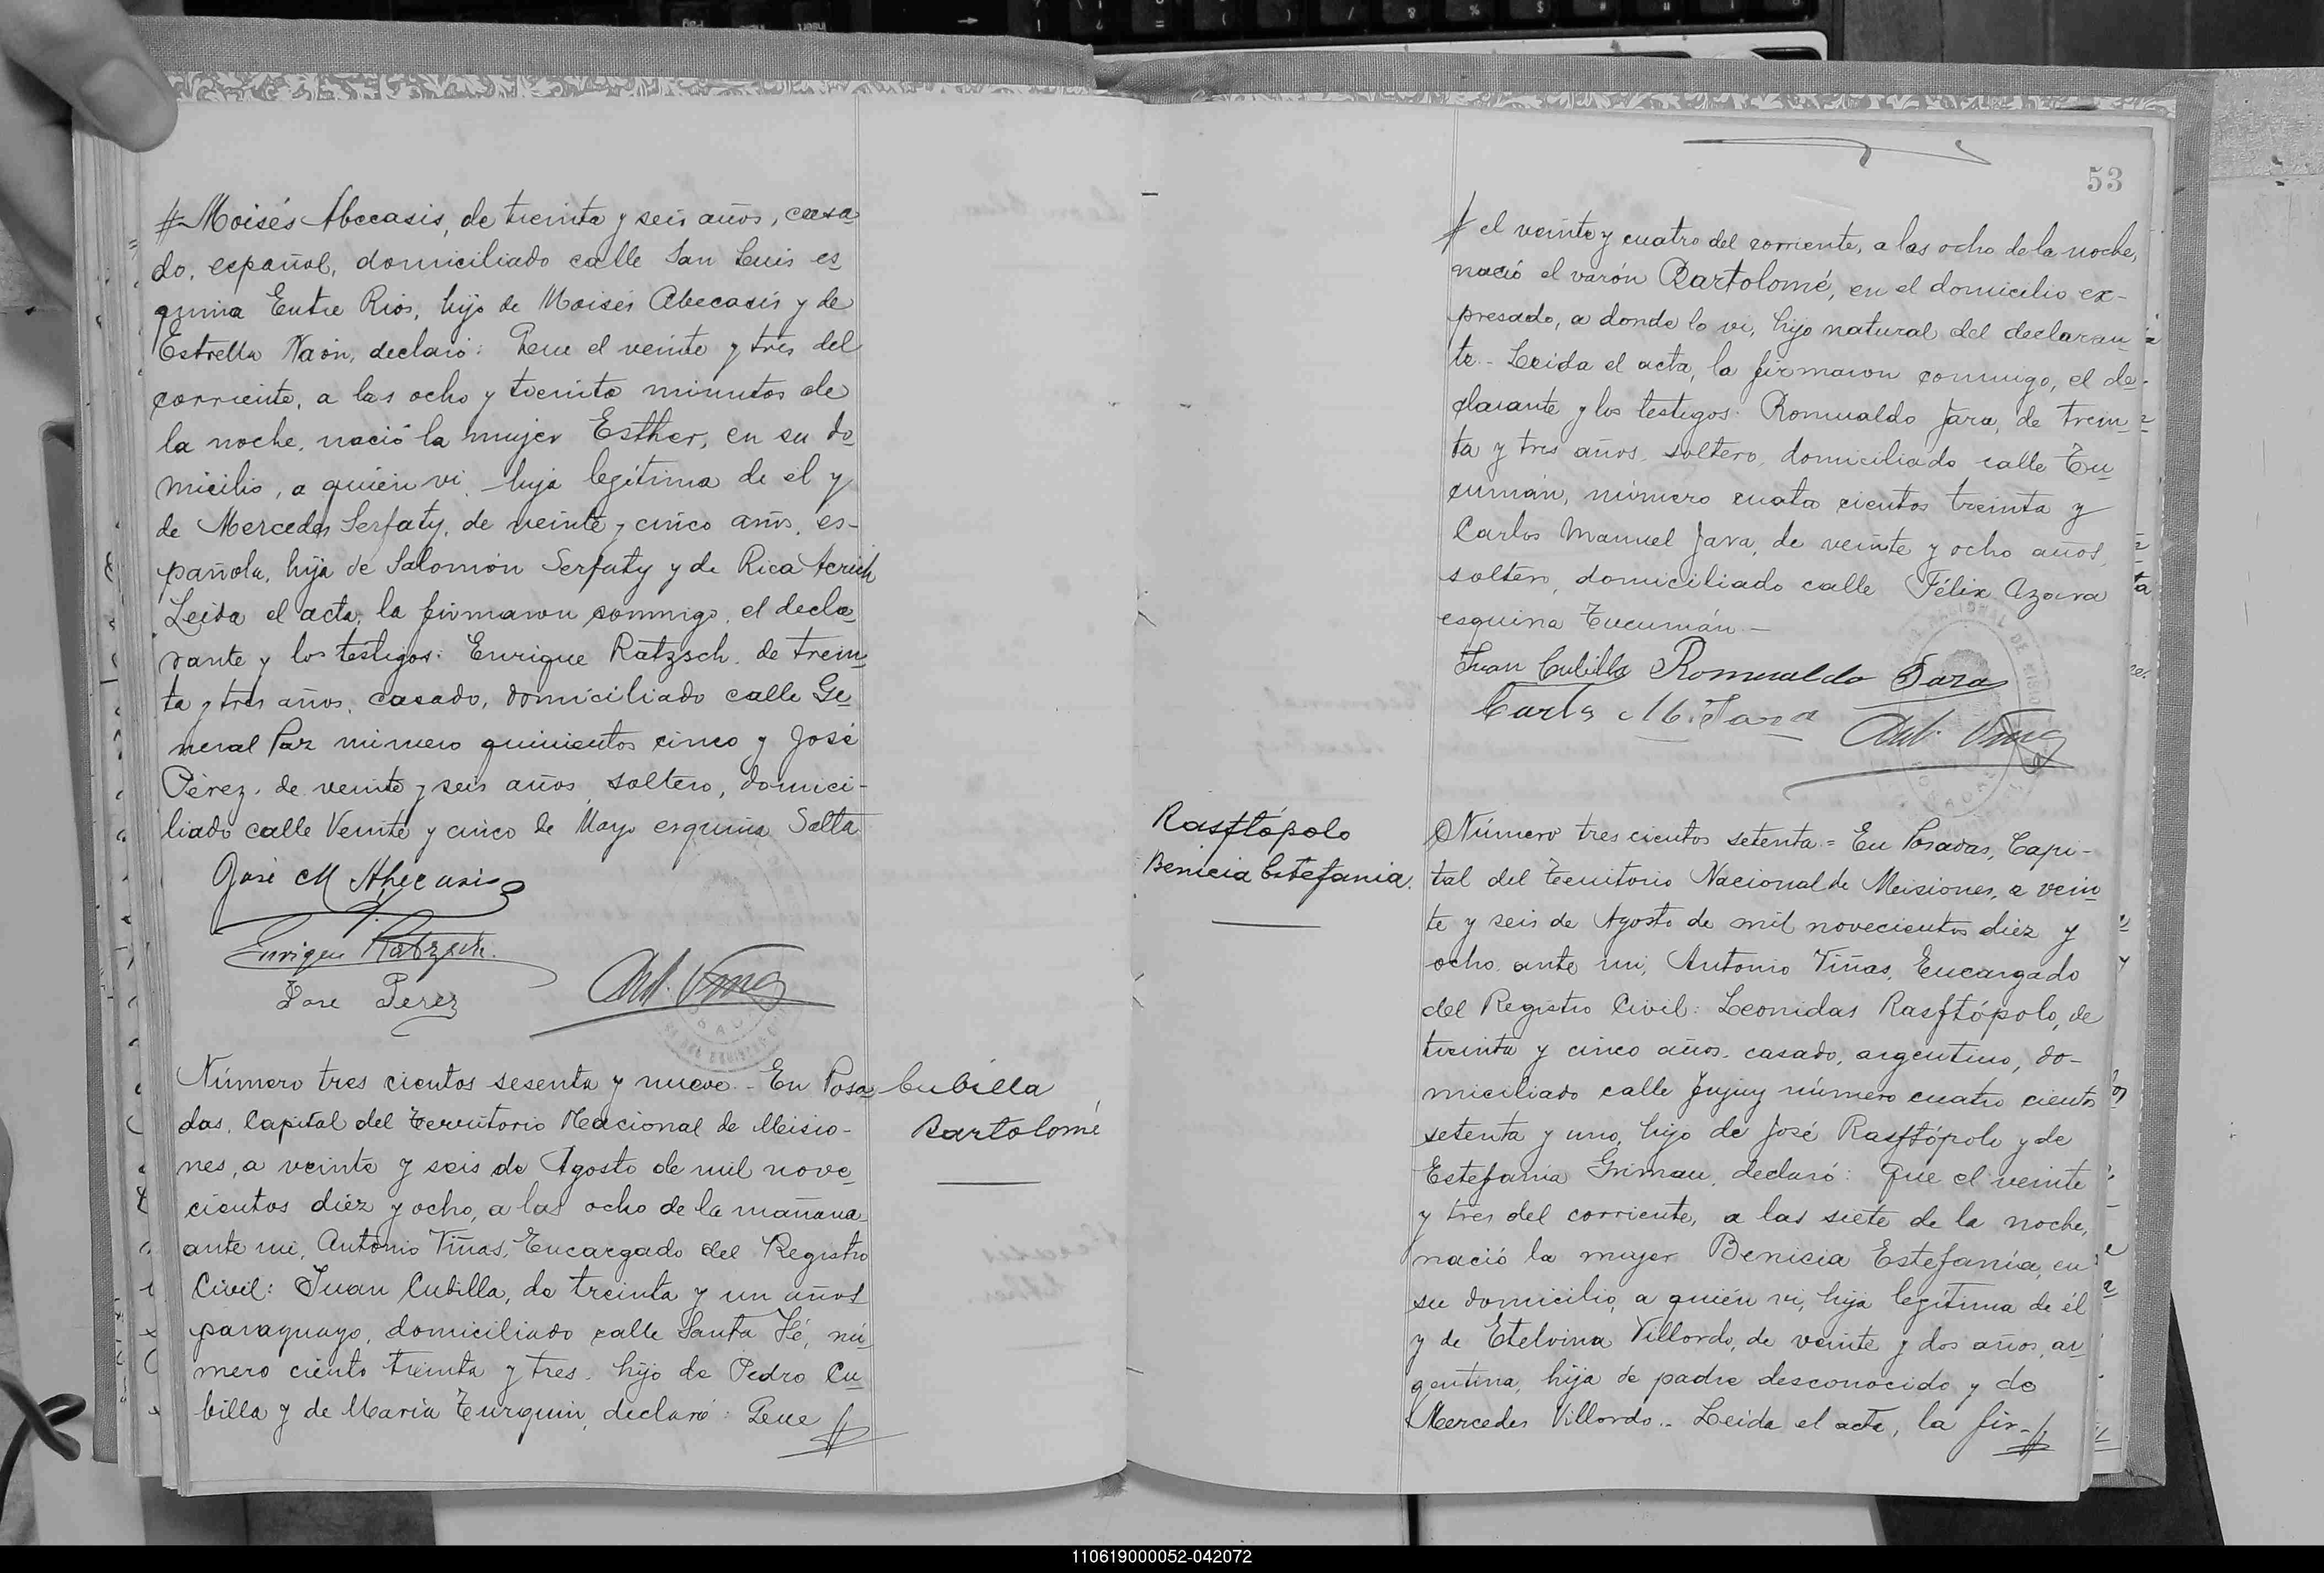 # Moisés Abecasis, de treinta y seis años, casa
do, español, domiciliado calle San Luis es
quina Entre Rios, hijo de Moisés Abecasis y de
Estrella Naón, declaró: Que el veinte y tres del
corriente, a las ocho y treinta minutos de
la noche, nació la mujer Esther, en su do
micilio, a quién vi, hija legítima de él y
de Mercedes Serfaty, de veinte y cinco años, es-
pañola, hija de Salomón Serfaty y de Rica Acrich
Leida el acta, la firmaron conmigo, el decla
rante y los testigos: Enrique Ratzsch, de trein
ta y tres años, casado, domiciliado calle Ge
neral Paz número quinientos cinco y José
Pérez, de veinte y seis años, soltero, domici-
liado calle Veinte y cinco de Mayo esquina Salta
José M Abecasis
Enrique Ratzsch.
Jose Perez
Número tres cientos sesenta y nueve.- En Posa
das, Capital del Territorio Nacional de Misio-
nes, a veinte y seis de Agosto de mil nove
cientos diez y ocho, a las ocho de la mañana
ante mi, Antonio Tiñas, Encargado del Registro
Civil: Juan Cubilla, de treinta y un años
paraguayo, domiciliado calle Santa Fé, nú
mero ciento treinta y tres, hijo de Pedro Cu
billa y de María Turquin, declaró: Que #
Cubilla
Bartolomé
53
# el veinte y cuatro del corriente, a las ocho de la noche,
nació el varón Bartolomé, en el domicilio ex-
presado, a donde lo vi, hijo natural del declaran
te.- Leida el acta, la firmaron conmigo, el de-
clarante y los testigos: Romualdo Jara, de trein
ta y tres años, soltero, domiciliado calle Tu
cumán, número cuatro cientos treinta y
Carlos Manuel Jara, de veinte y ocho años,
soltero, domiciliado calle Félix Azara
esquina Tucumán.-
Juan Cubilla Romualdo Jara
Carlos M. Jara
Rasftópolo
Benicia Estefania.
Número tres cientos setenta = En Posadas, Capi-
tal del Territorio Nacional de Misiones, a vein
te y seis de Agosto de mil novecientos diez y
ocho, ante mi, Antonio Tiñas, Encargado
del Registro Civil: Leonidas Rasftópolo, de
treinta y cinco años, casado, argentino, do-
miciliado calle Jujuy número cuatro cientos
setenta y uno, hijo de José Rasftópolo y de
Estefania Grimau, declaró: Que el veinte
y tres del corriente, a las siete de la noche,
nació la mujer Benicia Estefanía, en
su domicilio, a quién vi, hija legítima de él
y de Etelvina Villordo, de veinte y dos años, ar
gentina, hija de padre desconocido y de
Mercedes Villordo.- Leida el acta, la fir- #
110619000052-042072